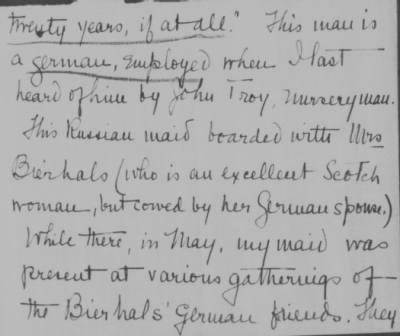 twenty years, if at all." This man is
a german, employed when I last
heard of him by John Troy, nurseryman.
This Russian maid boarded with Mrs
Bierhals (who is an excellent Scotch
woman, but cowed by her German spouse.)
While there, in May, my maid was
present at various gatherings of
the Bierhals' German friends. They